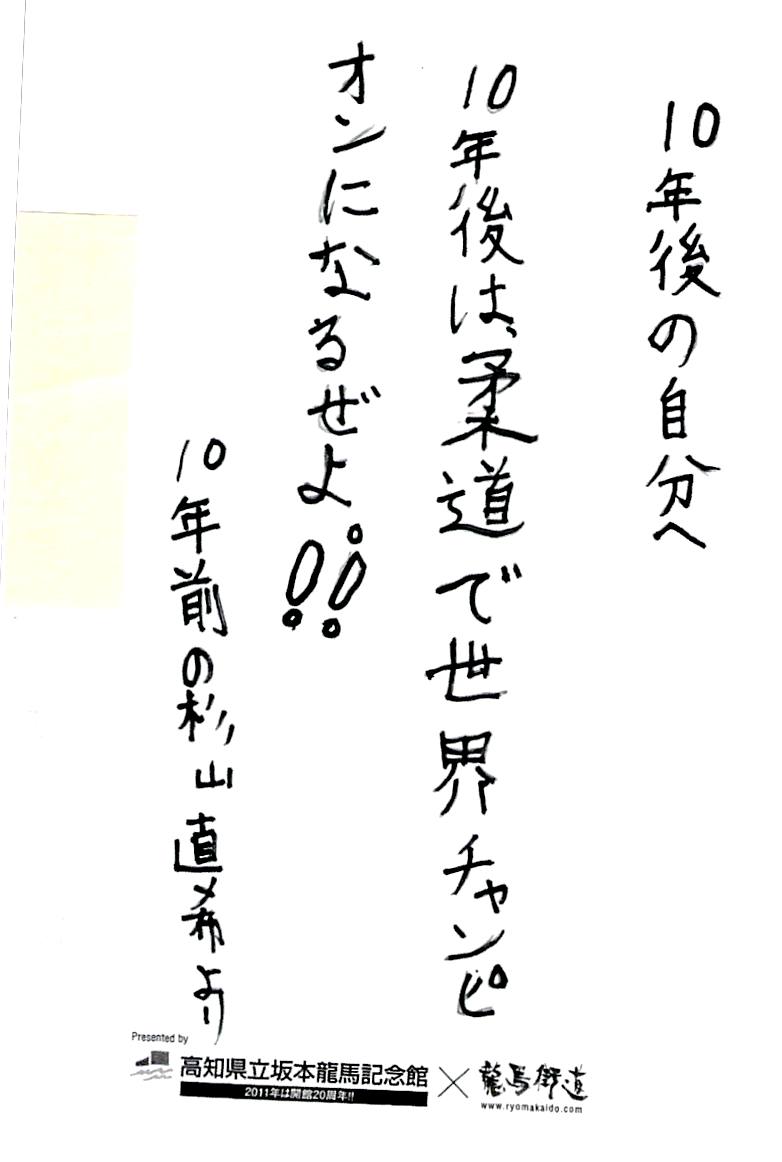 10年後の自分へ
10年後は、柔道で世界チャンピ
オンになるぜよ!!
10年前の杉山直希より
Presented by
高知県立坂本龍馬記念館×龍馬街道
2011年は開館20周年!!
www.ryomakaido.com